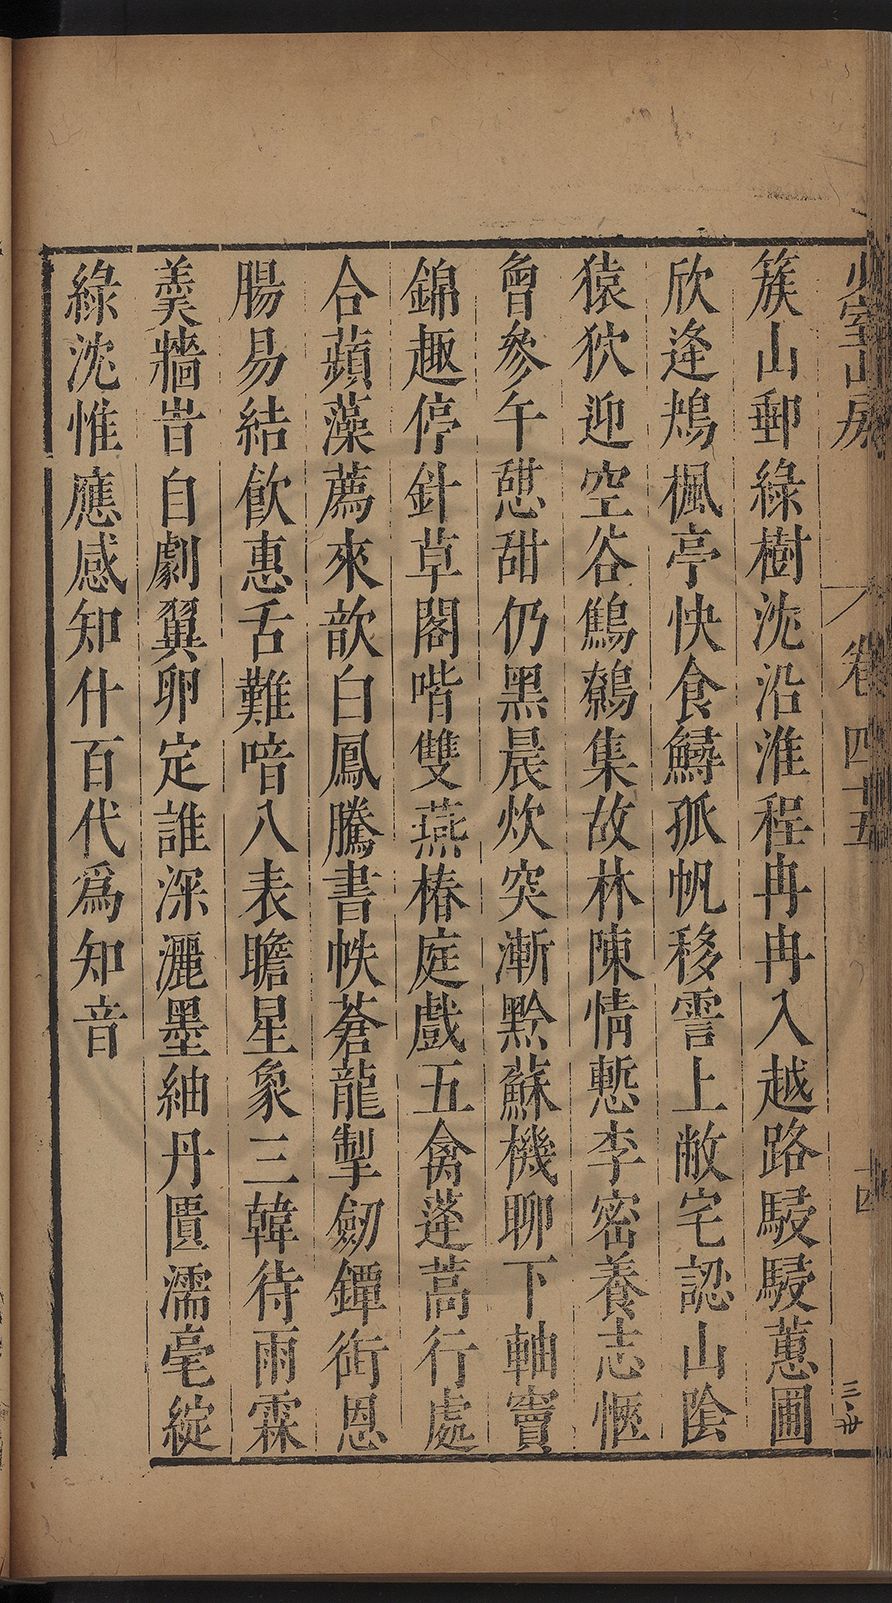 少室山房
卷四十五
十四
簇山郵綠樹沈沿淮程冉冉入越路駸駸蕙圃
欣逢鴂楓亭快食鱘孤帆移霅上敝宅認山陰
猿狖迎空谷鷦鷯集故林陳情慙李密養志愜
曾參午憩甜仍黑晨炊突漸黔蘇機聊下軸竇
錦趣停針草閣喈雙燕椿庭戲五禽蓬蒿行處
合蘋藻薦來歆白鳳騰書帙蒼龍掣劒鐔銜恩
腸易結飲惠舌難喑八表瞻星象三韓待雨霖
羹牆旹自劇翼卵定誰深灑墨紬丹匱濡毫綻
綠沈惟應感知什百代爲知音